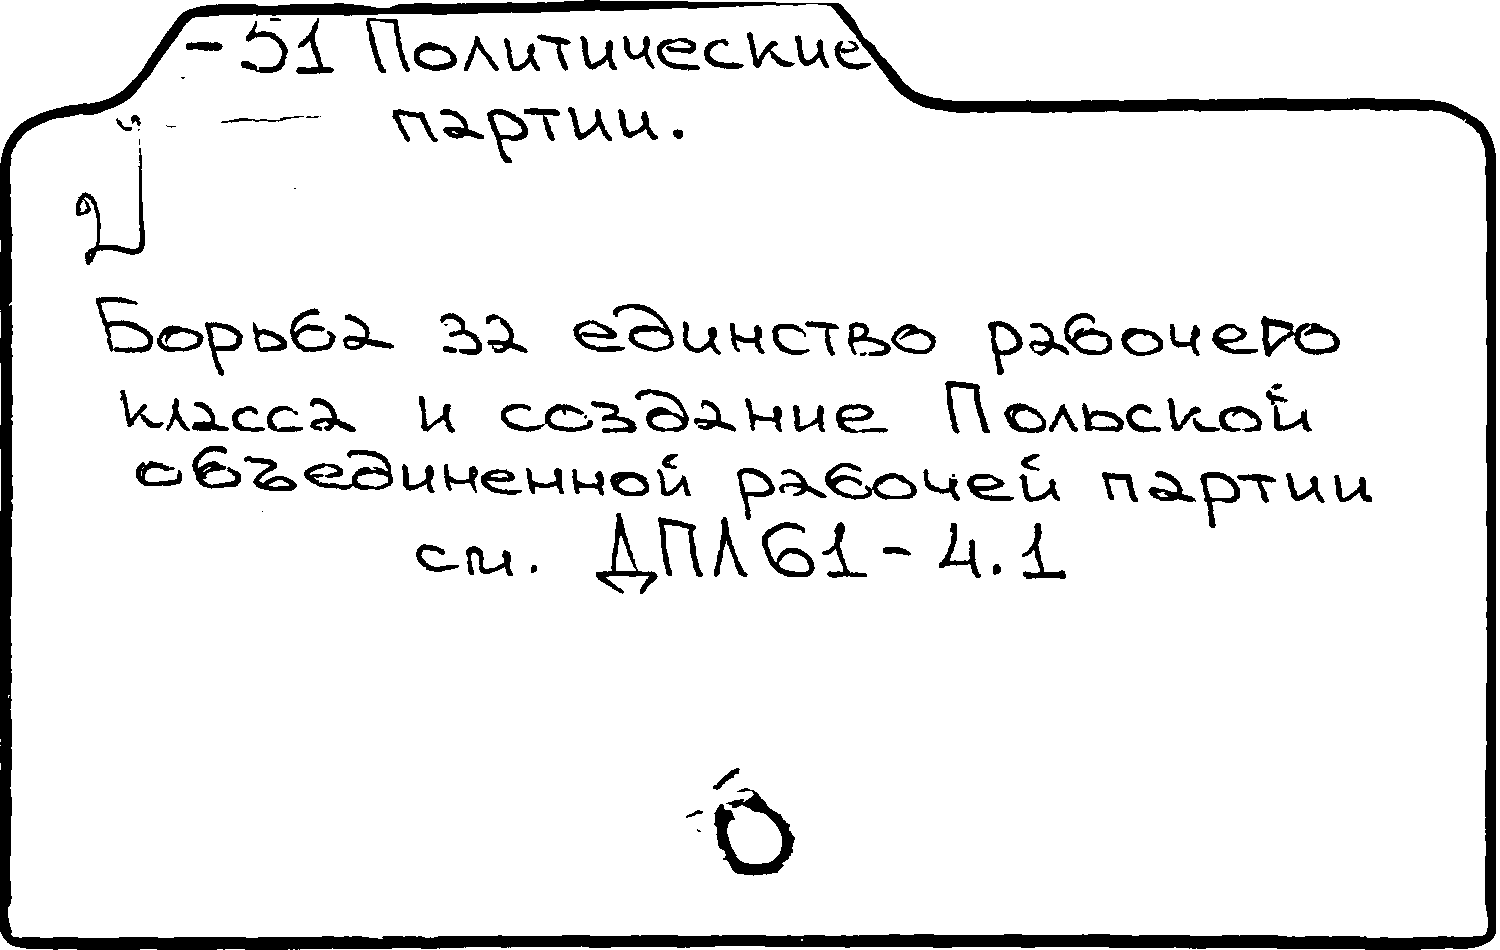 -51 Политические
партии.
Борьба за единство рабочего
класса и создание Польской
объединенной рабочей партии
см. ДПЛ61-4.1